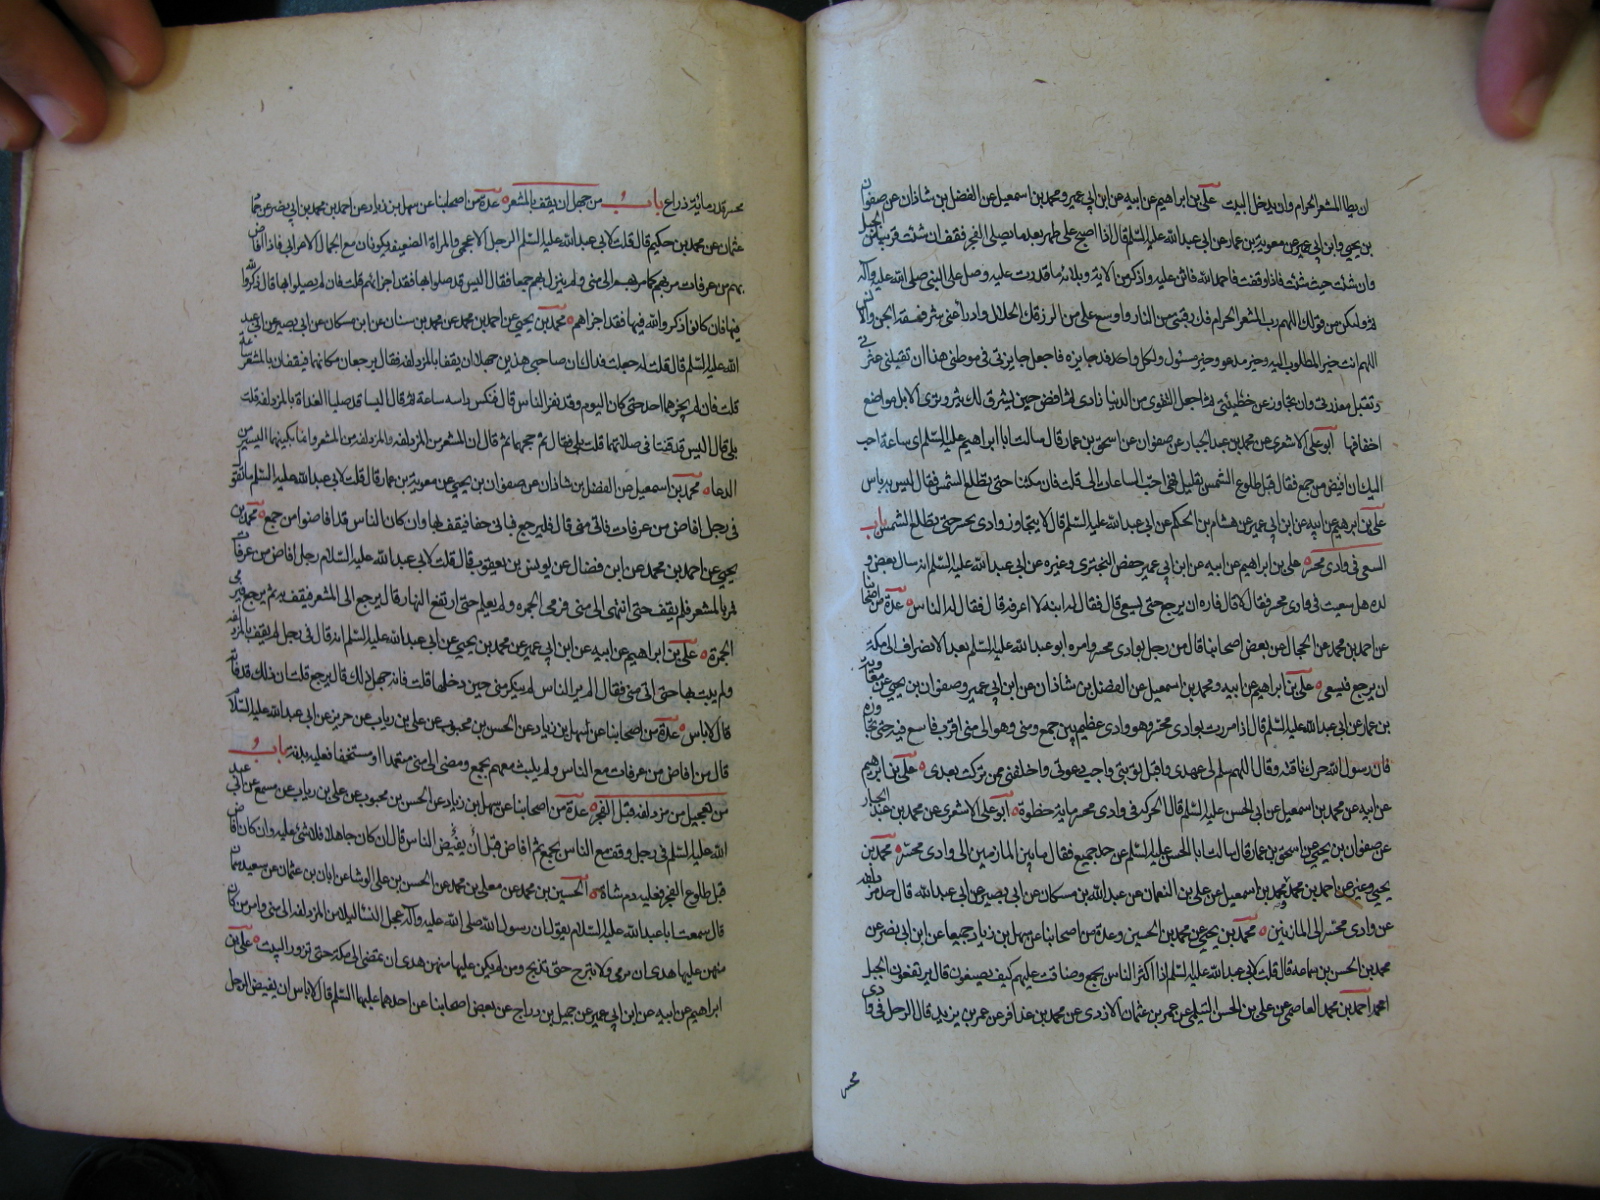 ان يطا المشعر الحرام وان يدخل البيت علي بن ابراهيم عن ابيه عن ابن ابي عمير ومحمد بن اسمعيل عن الفضل بن شاذان عن صفوان
بن يحيى وابن ابي عمير عن معوية بن عمار عن ابي عبد الله عليه السلم قال اذا اصبح على طهر بعد ما يصلى الفجر فقف ان شئت قريبا من الجبل
وان شئت حيث شئت فاذا وقفت فاحمد الله واثن عليه واذكر من الائه وبلائه ما قدرت عليه وصل على النبي صلى الله عليه وآله
ثم وليكن من قولك اللهم رب المشعر الحرام فك رقبتي من النار واوسع علي من الرزق الحلال وادرأ عني شر فسقة الجن والانس
اللهم انت خير المطلوب اليه وخير مدعو وخير مسئول ولكل وافد جايزة فاجعل جايزتي في موطني هذا ان تقيلني عثرتي
وتقبل معذرتي وان تجاوز عن خطيئتي ثم اجعل التقوى من الدنيا زادي ثم افض حين يشرق لك ثبير وترى الابل مواضع
اخفافها ابو علي الاشعري عن محمد بن عبد الجبار عن صفوان عن اسحق بن عمار قال سالت ابا ابراهيم عليه السلم اي ساعة احب
اليك ان افيض من جمع فقال قبل طلوع الشمس بقليل فهي احب الساعات الي قلت فان مكثنا حتى تطلع الشمس فقال ليس به باس
علي بن ابراهيم عن ابيه عن ابن ابي عمير عن هشام بن الحكم عن ابي عبد الله عليه السلم قال لا يتجاوز وادى محسر حتى تطلع الشمس باب
السعى في وادى محسر علي بن ابراهيم عن ابيه عن ابن ابي عمير حفص البختري وغيره عن ابي عبد الله عليه السلم انه سال بعض و
لده هل سعيت في وادى محسر فقال لا قال فامره ان يرجع حتى يسعى قال فقال له ابنه لا اعرفه قال فقال له سل الناس عدة من اصحابنا
عن احمد بن محمد عن الحجال عن بعض اصحابنا قال مر رجل بوادى محسر وامره ابو عبد الله عليه السلم بعد الانصراف الى مكة
ان يرجع فليسعى علي بن ابراهيم عن ابيه ومحمد بن اسمعيل عن الفضل بن شاذان عن ابن ابي عمير وصفوان بن يحيى عن معاوية
بن عمار عن ابي عبد الله عليه السلم قال اذا مررت بوادى محسر وهو وادى عظيم بين جمع ومنى وهو الى منى اقرب فاسع فيه حتى تجاوزه
فان رسول الله حرك ناقته وقال اللهم سلم لي عهدي واقبل توبتي واجب دعوتي واخلفني ممن تركت بعدي علي بن ابراهيم
عن ابيه عن محمد بن اسمعيل عن ابي الحسن عليه السلم قال الحركة في وادى محسر ماية خطوة ابو علي الاشعري عن محمد بن عبد الجبار
عن صفوان بن يحيى عن اسحق بن عمار قال سالت ابا الحسن عليه السلم عن حد جمع فقال ما بين المازمين الى وادى محسر محمد بن
يحيى وغيره عن احمد بن محمد ومحمد بن اسمعيل عن علي بن النعمان عن عبد الله بن مسكان عن ابي بصير عن ابي عبد الله قال حد مزدلفة
عن وادى محسر الى المازمين محمد بن يحيى عن محمد بن الحسين وعدة من اصحابنا عن سهل بن زياد جميعا عن ابن ابي نصر عن
محمد بن الحسن بن سماعة قال قلت لابي عبد الله عليه السلم اذا اكثر الناس بجمع وضاقت عليهم كيف يصنعون قال يرتفعون الجبل
احمد بن محمد العاصمي عن علي بن الحسن السلمي عن عمرو بن عثمان الازدى عن محمد بن عذافر عن عمر بن يزيد قال الرمل في وادى
محسر
محسر قدر مائية ذراع باب من جهل ان يقف بالمشعر عدة من اصحابنا عن سهل بن زياد عن احمد بن محمد بن ابي نصر عن حماد
عثمان عن محمد بن حكيم قال قلت لابي عبد الله عليه السلم الرجل الاعجمي والمراة الضعيفة يكونان مع الجمال الاعرابي فاذا افاض
بهم من عرفات مر بهم كما مر بهم الى منى ولم ينزل بهم جمعا فقال اليس قد صلوا بها فقد اجزائهم قلت فان لم يصلوا بها قال ذكروا الله
فيها فان كانوا ذكروا الله فيها فقد اجزاهم محمد بن يحيى عن احمد بن محمد عن محمد بن سنان عن ابن مسكان عن ابي بصير عن ابي عبد
الله عليه السلم قال قلت له جعلت فداك ان صاحبي هذين جهلا ان يقفا بالمزدلفة فقال يرجعان مكانهما فيقفان بالمشعر ساعة
قلت فان لم يخبرهما احد حتى كان اليوم وقد نفر الناس قال فنكس راسه ساعة ثم قال اليسا قد صليا الغداة بالمزدلفة قلت
بلى قال اليس قد قنتا في صلاتهما قلت بلى فقال تم حجهما ثم قال ان المشعر من المزدلفة والمزدلفة من المشعر وانما يكفيهما اليسير من
الدعاء محمد بن اسمعيل عن الفضل بن شاذان عن صفوان بن يحيى عن معوية بن عمار قال قلت لابي عبد الله عليه السلم ما تقول
في رجل افاض من عرفات فاتى منى قال فليرجع فياتي جمعا فيقف بها وان كان الناس قد افاضوا من جمع محمد بن
يحيى عن احمد بن محمد عن ابن فضال عن يونس بن يعقوب قال قلت لابي عبد الله عليه السلام رجل افاض من عرفات
فمر بالمشعر فلم يقف حتى انتهى الى منى فرمى الجمرة ولم يعلم حتى ارتفع النهار قال يرجع الى المشعر فيقف به ثم يرجع فيرمي
الجمرة علي بن ابراهيم عن ابيه عن ابن ابي عمير عن محمد بن يحيى عن ابي عبد الله عليه السلم انه قال في رجل لم يقف بالمزدلفة
ولم يبت بها حتى اتى منى فقال الم ير الناس لم ينكر منى حين دخلها قلت فانه جهل ذلك قال يرجع قلت ان ذلك قد فاته
قال لا باس عدة من اصحابنا عن سهل بن زياد عن الحسن بن محبوب عن علي بن رياب عن حريز عن ابي عبد الله عليه السلام
قال من افاض من عرفات مع الناس ولم يلبث معهم بجمع ومضى الى منى متعمدا او مستخفا فعليه بدنة باب
من تعجيل من مزدلفة قبل الفجر عدة من اصحابنا عن سهل بن زياد عن الحسن بن محبوب عن علي بن رياب عن مسمع عن ابي عبد
الله عليه السلم في رجل وقف مع الناس بجمع ثم افاض قبل أن يفيض الناس قال ان كان جاهلا فلا شئ عليه وان كان افاض
قبل طلوع الفجر فعليه دم شاة الحسين بن محمد عن معلى بن محمد عن الحسن بن علي الوشا عن ابان بن عثمان عن سعيد السمان
قال سمعت ابا عبد الله عليه السلام يقول ان رسول الله صلى الله عليه وآله عجل النسا ليلا من المزدلفة الى منى وامر من كان
منهن عليها هدى ان ترمى ولا تبرح حتى تذبح ومن لم يكن عليها منهن هدى ان تمضى الى مكة حتى تزور البيت علي بن
ابراهيم عن ابيه عن ابن ابي عمير عن جميل بن دراج عن بعض اصحابنا عن احدهما عليهما السلم قال لا باس ان يفيض الرجل